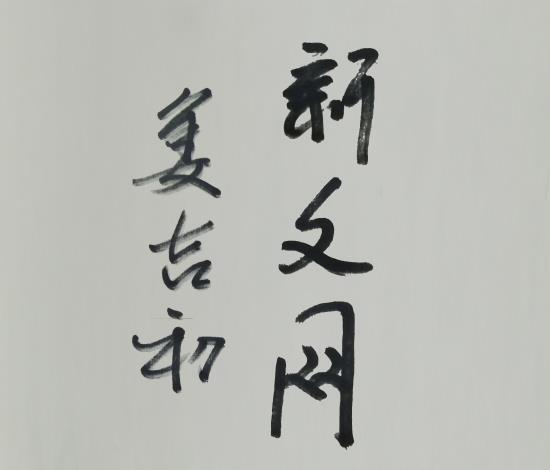 新文网
姜吉初